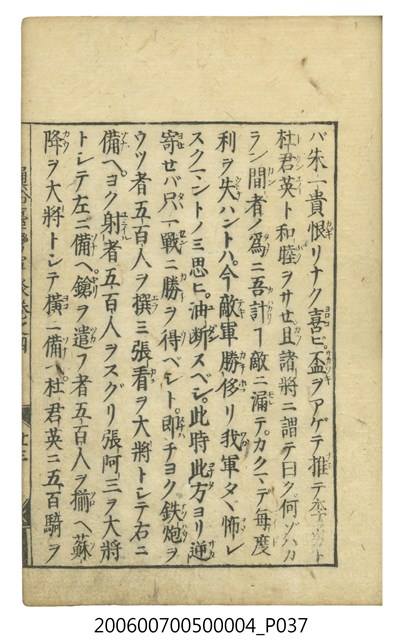 バ朱一貴恨リナク喜ヒ盃ヲアゲテ推テ李勇ト
杜君英ト和睦ヲサせ且諸將ニ謂テ曰ク何ゾハカ
ラン間者ノ爲ニ吾計ヿ敵ニ漏テカクマデ毎度
利ヲ失ハントハ今敵軍勝侈リ我軍タヾ怖レ
スクマントノミ思ヒ油断スベシ此時此方ヨリ逆
寄せバ只一戰ニ勝ヲ得ベシト即チヨク鉄炮ヲ
ウツ者五百人ヲ撰ミ張看ヲ大將トシテ右ニ
備ヘヨク射者五百人ヲスグリ張阿三ヲ大將
トシテ左ニ備ヘ鎗ヲ遣フ者五百人ヲ揃ヘ蘇
降ヲ大將トシテ横ニ備ヘ杜君英ニ五百騎ヲ
200600700500004_P037